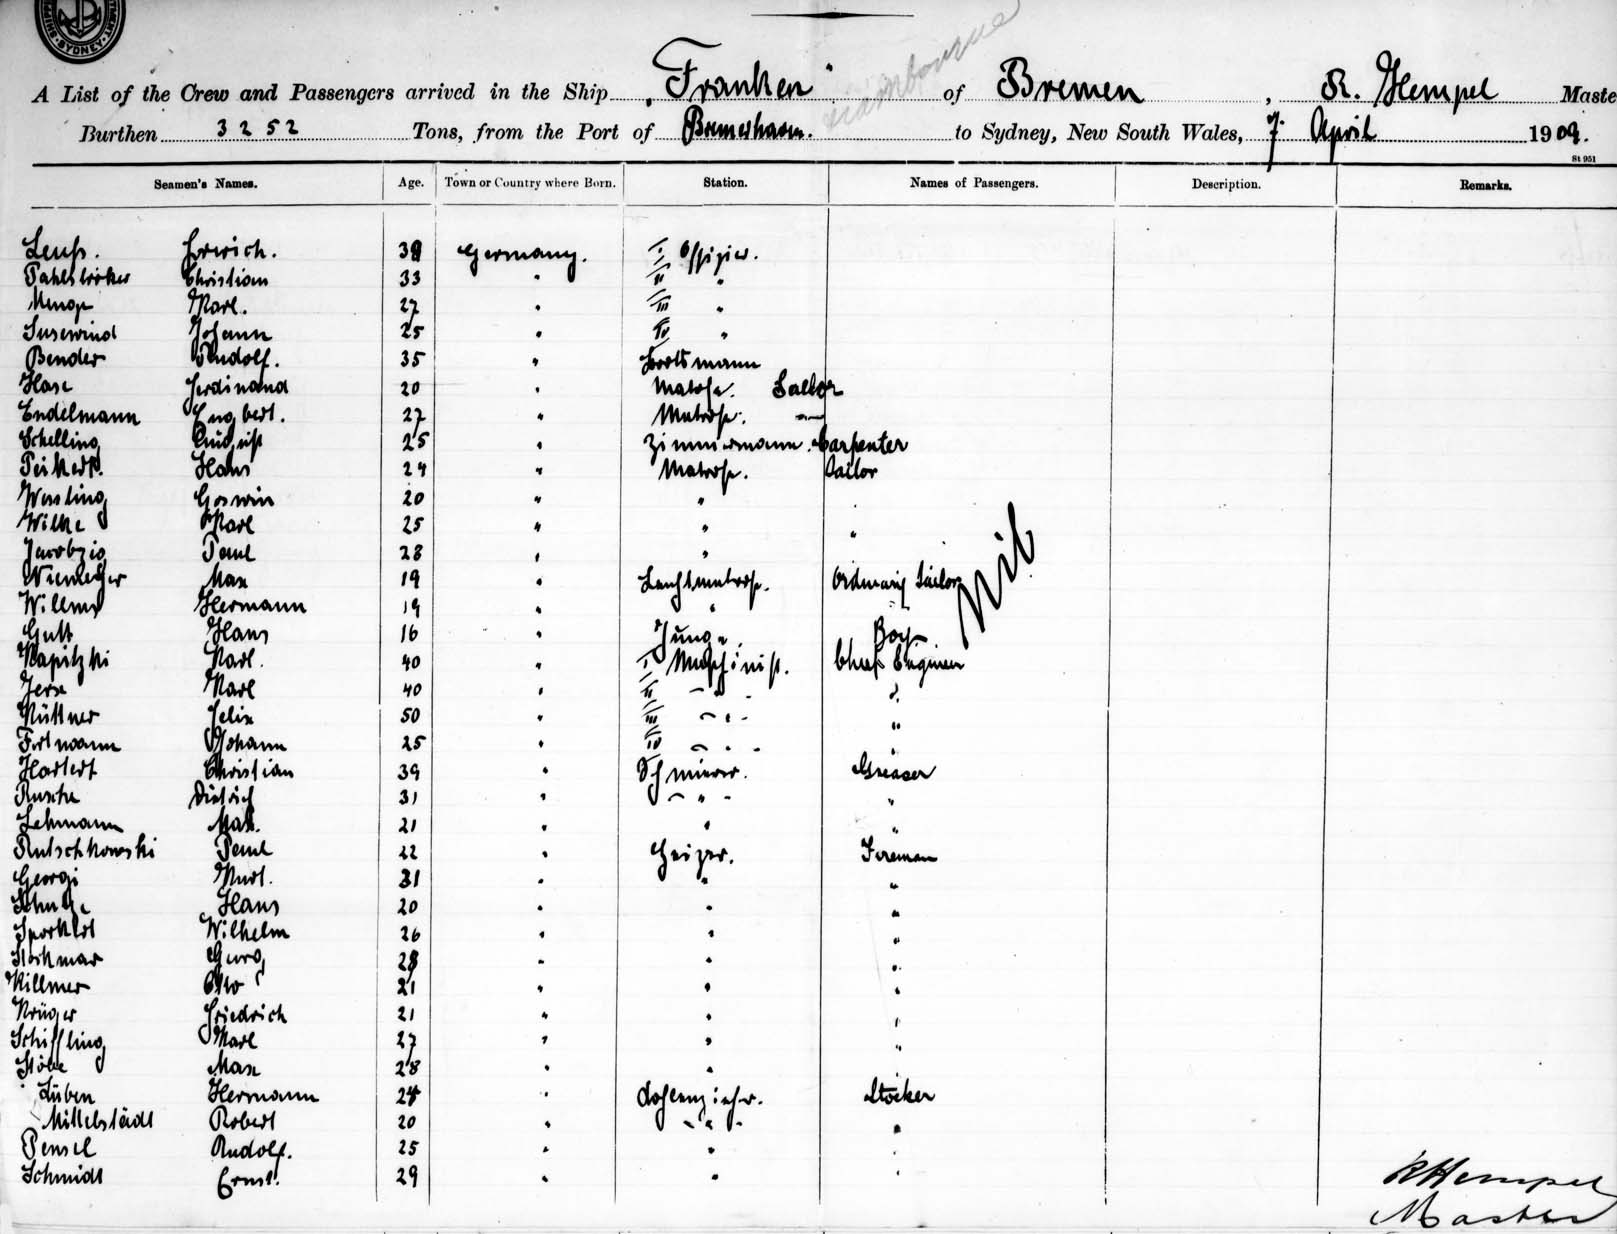 SYDNEY
A List of the Crew and Passengers arrived in the Ship "Franken" of Bremen, R. Hempel Maste
Burthen 3252 Tons, from the Port of Bremerhaven. to Sydney, New South Wales, 7. April 1909.
St 951
Seamen's Names. Age. Town or Country where Born. Station. Names of Passengers. Description. Remarks.
39 Germany. I. Offizier.
Christian 33 " II "
Karl. 27 " III "
Susewind Johann 25 " IV "
Bender Rudolf. 35 " Bootsmann
Hase Ferdinand 20 " Matrose. Sailor
Endelmann Engbert. 27 " Matrose. "
Schelling August 25 " Zimmermann. Carpenter
Hans 24 " Matrose. Sailor
Wessling Goswin 20 " "
Wilke Karl 25 " " "
Paul 28 " "
Niemeyer Max 19 " Leichtmatrose. Ordinary Sailor
Nil
Willms Hermann 19 " "
Gutt Hans 16 " Junge. Boy
Kapitzki Karl. 40 " I Maschinist. Chief Engineer
Karl 40 " II "
Küttner Felix 50 " III " "
Fortmann Johann 25 " IV " "
Christian 39 " Schmierer. Greaser
Dietrich 31 " " "
Lehmann Max. 21 " " "
Rutschkowski Paul 22 " Heizer. Fireman
Georgi Kurt. 31 " " "
Schulze Hans 20 " " "
Wilhelm 26 " " "
Stockmar Georg 28 " " "
Willmer Otto 21 " " "
Krüger Friedrich 21 " " "
Schiffling Karl 27 " " "
Max 28 " " "
Lüben Hermann 24 " Kohlenzieher. Stoker
Mittelstädt Robert 20 " " "
Pensel Rudolf. 25 " " "
Schmidt Ernst. 29 " " "
R Hempel
Master